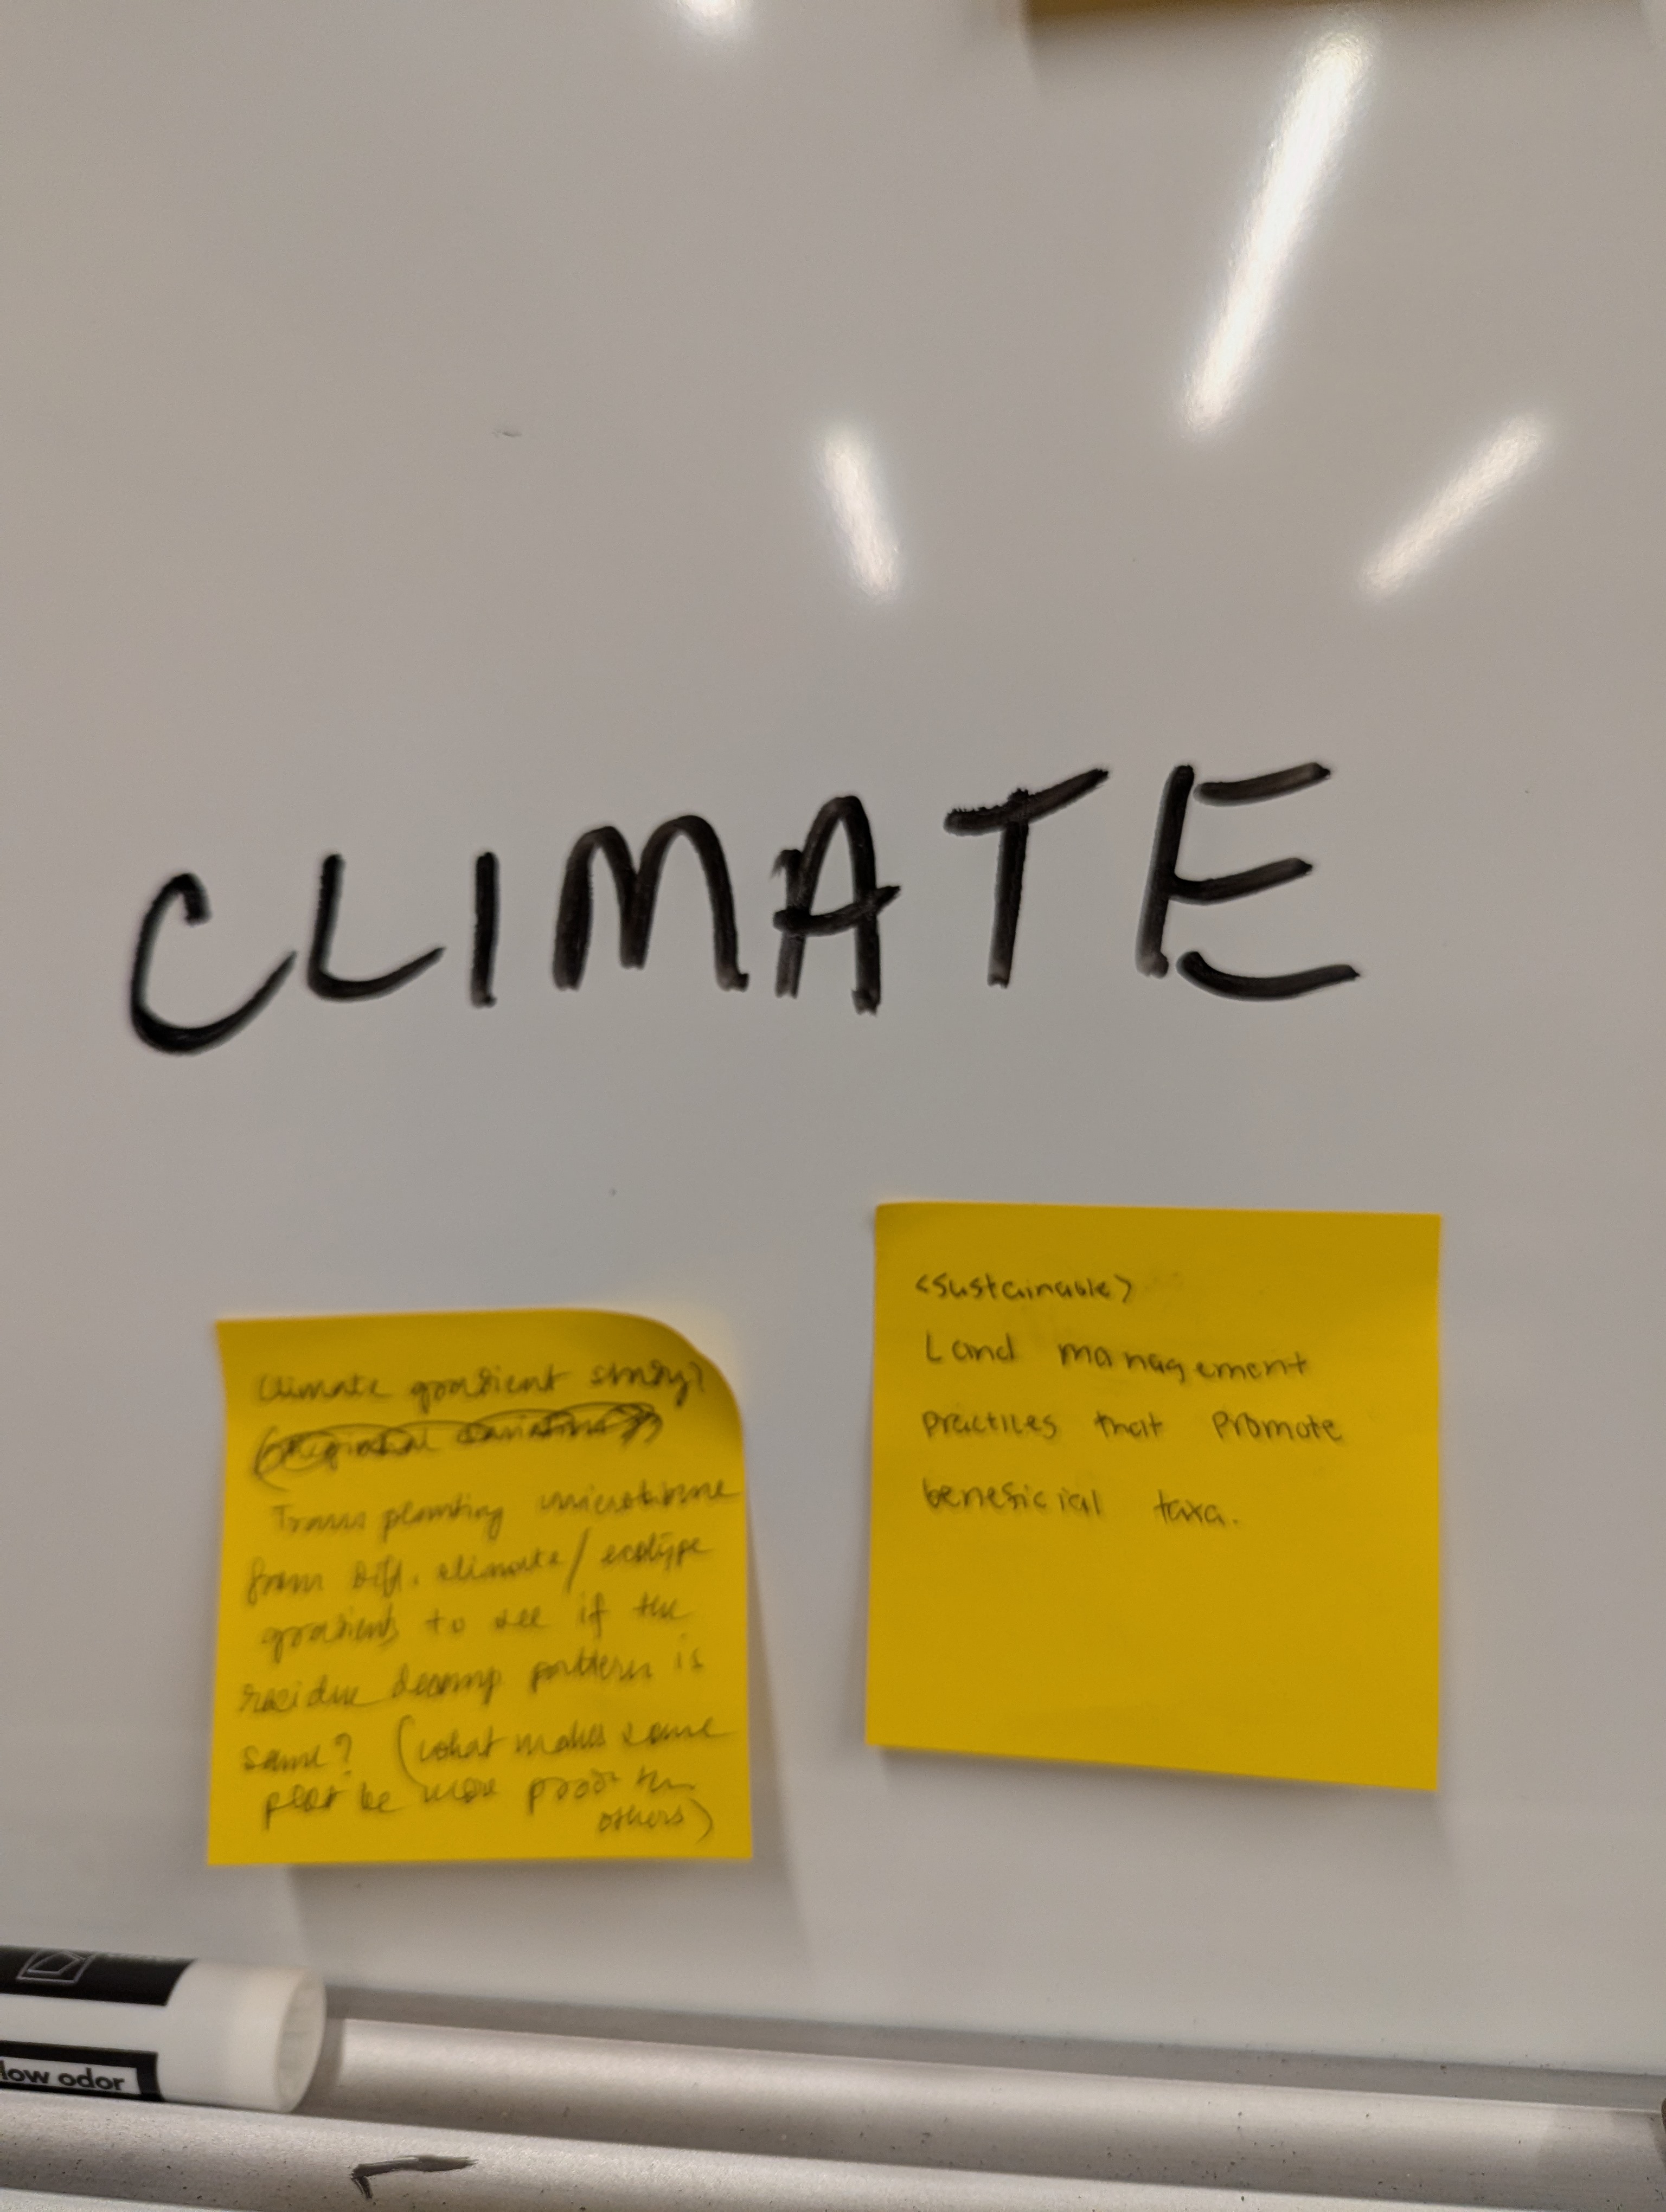 CLIMATE
Climate gradient study?
Transplanting microbiome
from diff. climate/ecotype
gradients to see if the
residue decomp pattern is
same? (what makes some
plot be more prod than
others)
<sustainable>
Land management
practices that promote
beneficial taxa.
low odor